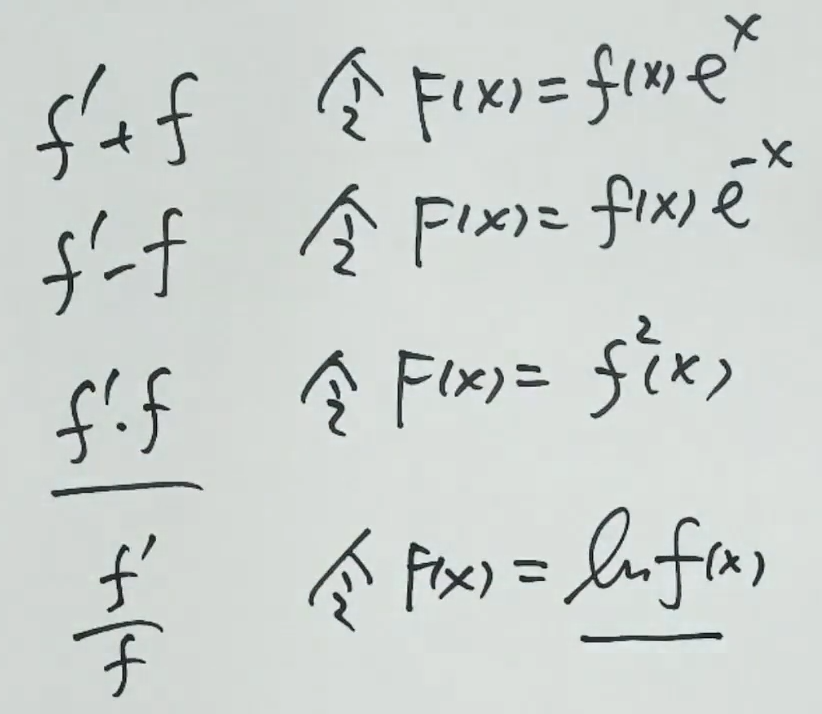 f'+f 令 F(x)=f(x)e^x
f'-f 令 F(x)=f(x)e^{-x}
f'·f 令 F(x)=f²(x)
f'/f 令 F(x)=ln f(x)